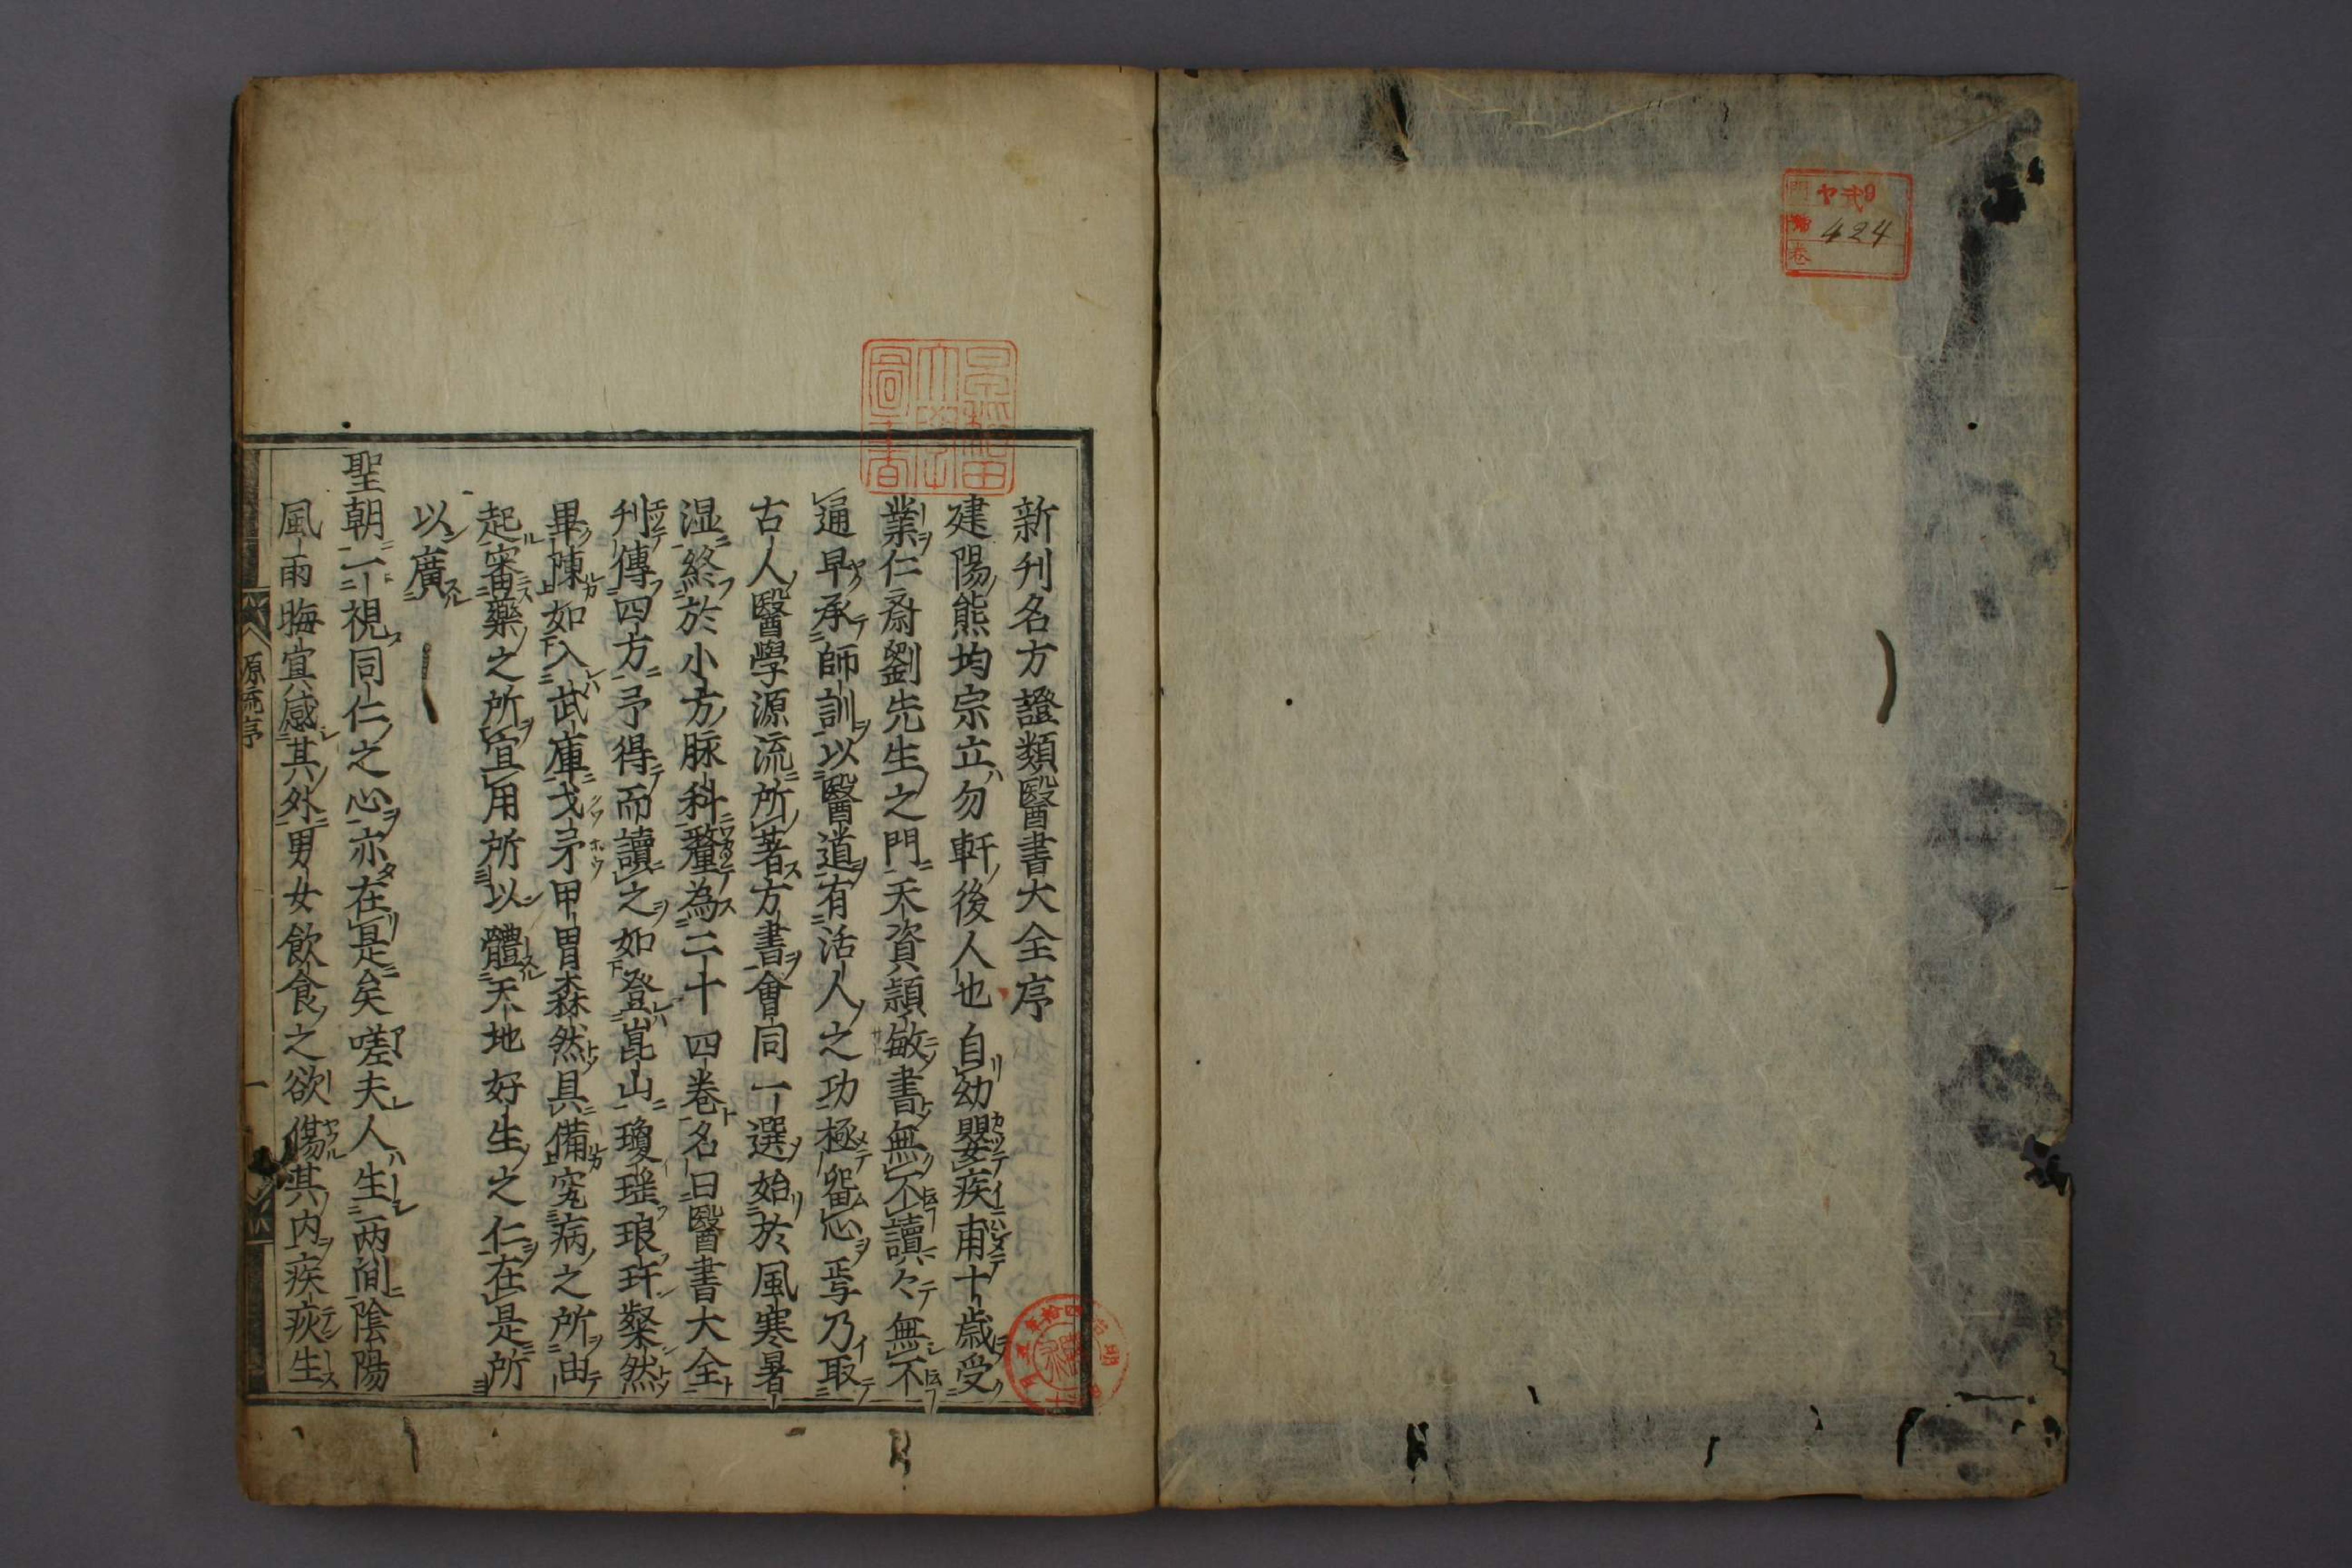 ヤ09
424
卷
新刊名方證類醫書大全序
建陽熊均宗立勿軒後人也自幼嬰疾甫十歳受
業仁齋劉先生之門天資頴敏書無不讀々無不
通早承師訓以醫道有活人之功極畱心焉乃取
古人醫學源流所著方書會同一選始於風寒暑
湿終於小方脉科釐為二十四卷名曰醫書大全
刋傳四方予得而讀之如登崑山瓊瑶琅玕粲然
畢陳如入武庫戈矛甲胄森然具備究病之所由
起審藥之所宜用所以體天地好生之仁在是所
以廣
聖朝一視同仁之心亦在是矣嗟夫人生两間陰陽
風雨晦㝠感其外男女飲食之欲傷其内疾疢生
源流序
一